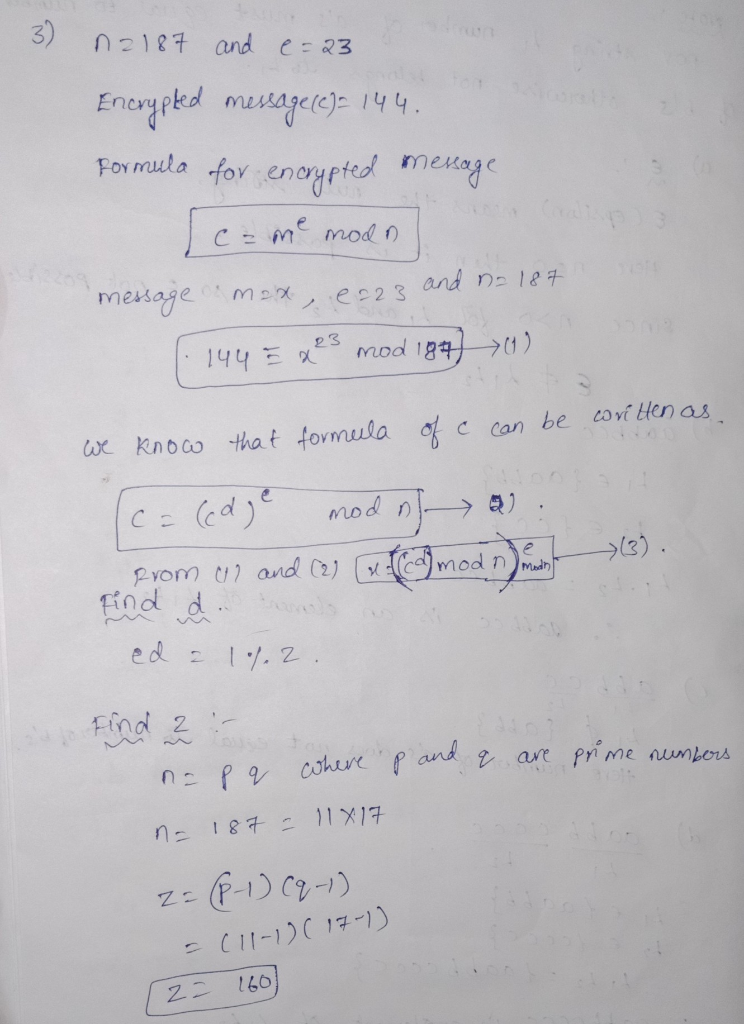 3) n=187 and e=23
Encrypted message(c)= 144.
Formula for encrypted message
c = m^e mod n
message m=x, e=23 and n=187
144 ≡ x^23 mod 187 →(1)
We know that formula of c can be written as.
c = (c^d)^e mod n → 2).
From (1) and (2) x=((c^d) mod n)^e mod n →(3).
Find d.
ed = 1 % z.
Find z :-
n= p q where p and q are prime numbers
n= 187 = 11X17
z= (p-1) (q-1)
= (11-1)(17-1)
z= 160